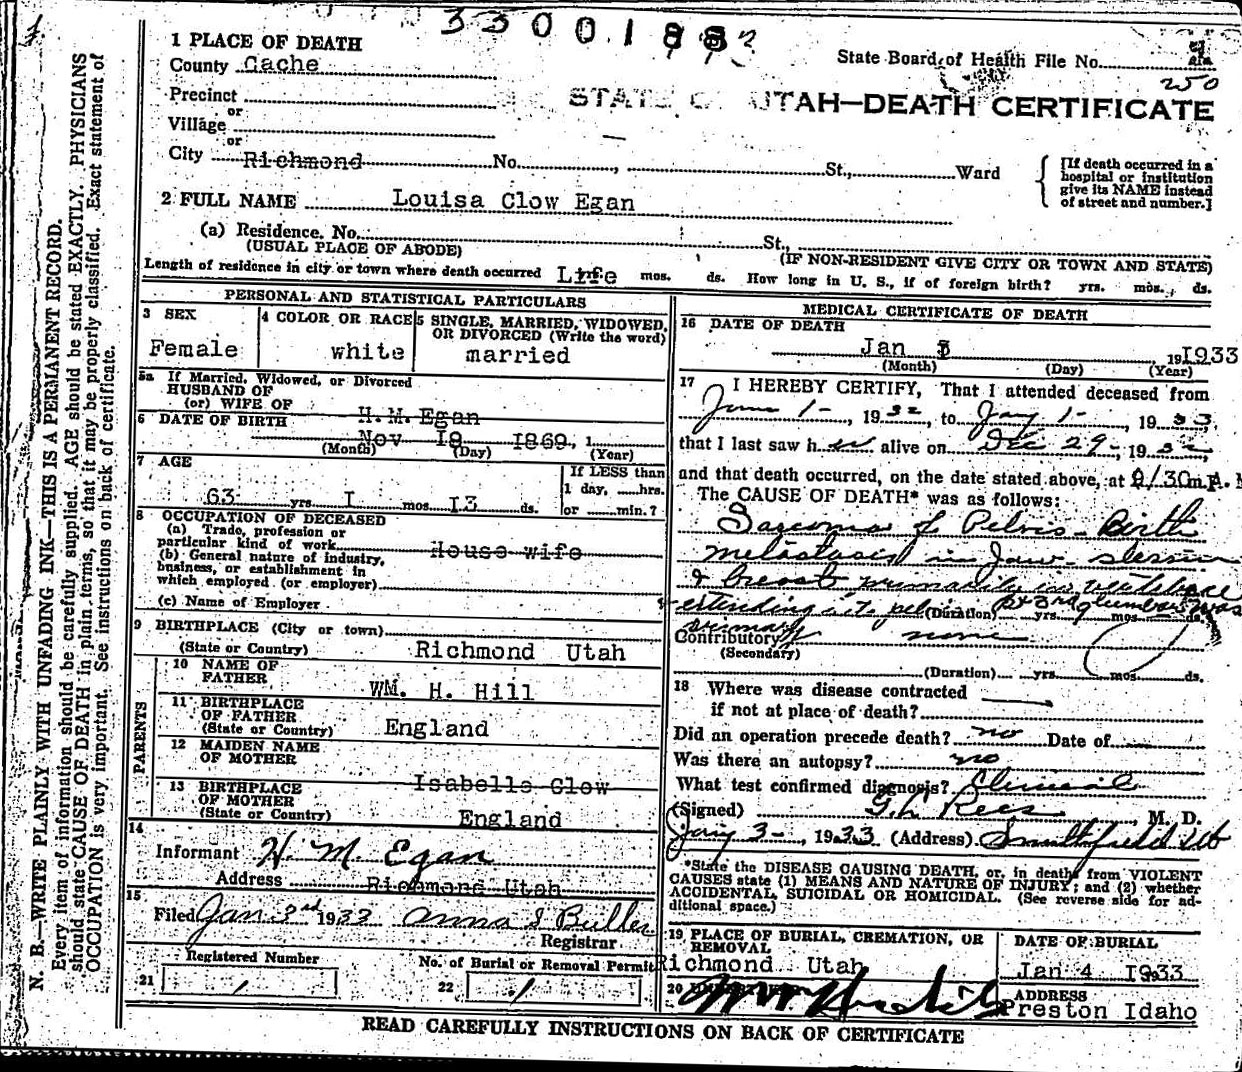 1 PLACE OF DEATH
County Cache
State Board of Health File No.
250
Precinct
or
STATE OF UTAH—DEATH CERTIFICATE
Village
or
City Richmond No. , St., Ward
[If death occurred in a
hospital or institution
give its NAME instead
of street and number.]
2 FULL NAME Louisa Clow Egan
(a) Residence. No. St.,
(USUAL PLACE OF ABODE) (IF NON-RESIDENT GIVE CITY OR TOWN AND STATE)
Length of residence in city or town where death occurred Life mos. ds. How long in U. S., if of foreign birth? yrs. mos. ds.
PERSONAL AND STATISTICAL PARTICULARS
3 SEX
Female
4 COLOR OR RACE
white
5 SINGLE, MARRIED, WIDOWED,
OR DIVORCED (Write the word)
married
5a If Married, Widowed, or Divorced
HUSBAND OF
(or) WIFE OF H.M.Egan
6 DATE OF BIRTH
Nov 18 1869, 1
(Month) (Day) (Year)
7 AGE
63 yrs. 1 mos. 13 ds.
If LESS than
1 day, hrs.
or min.?
8 OCCUPATION OF DECEASED
(a) Trade, profession or
particular kind of work House wife
(b) General nature of industry,
business, or establishment in
which employed (or employer)
(c) Name of Employer
9 BIRTHPLACE (City or town)
(State or Country) Richmond Utah
PARENTS
10 NAME OF
FATHER WM. H. Hill
11 BIRTHPLACE
OF FATHER
(State or Country) England
12 MAIDEN NAME
OF MOTHER
Isabella Clow
13 BIRTHPLACE
OF MOTHER
(State or Country) England
14
Informant H. M. Egan
Address Richmond Utah
15
Filed Jan 3rd 1933 Anna S Buller
Registrar
Registered Number
21 1
No. of Burial or Removal Permit
22 1
MEDICAL CERTIFICATE OF DEATH
16 DATE OF DEATH
Jan 3 191933
(Month) (Day) (Year)
17 I HEREBY CERTIFY, That I attended deceased from
June 1-, 1932, to Jany 1-, 1933,
that I last saw her alive on Dec 29-, 1932
and that death occurred, on the date stated above, at /30m A. M
The CAUSE OF DEATH* was as follows:
Sarcoma of Pelvis - Birth
metastasis in Jaw -
& breast primarily in vertebrae
extending into (Duration) yrs. mos. ds.
primary
Contributory none
(Secondary)
(Duration) yrs. mos. ds.
18 Where was disease contracted
if not at place of death?
Did an operation precede death? no Date of
Was there an autopsy? no
What test confirmed diagnosis? Clinical
(Signed) G.L. Rees, M. D.
Jany 3-, 1933 (Address) Smithfield Ut
*State the DISEASE CAUSING DEATH, or, in deaths from VIOLENT
CAUSES state (1) MEANS AND NATURE OF INJURY; and (2) whether
ACCIDENTAL, SUICIDAL OR HOMICIDAL. (See reverse side for ad-
ditional space.)
19 PLACE OF BURIAL, CREMATION, OR
REMOVAL
Richmond Utah
DATE OF BURIAL
Jan 4 1933
20
ADDRESS
Preston Idaho
READ CAREFULLY INSTRUCTIONS ON BACK OF CERTIFICATE
N. B.—WRITE PLAINLY WITH UNFADING INK—THIS IS A PERMANENT RECORD.
Every item of information should be carefully supplied. AGE should be stated EXACTLY. PHYSICIANS
should state CAUSE OF DEATH in plain terms, so that it may be properly classified. Exact statement of
OCCUPATION is very important. See instructions on back of certificate.